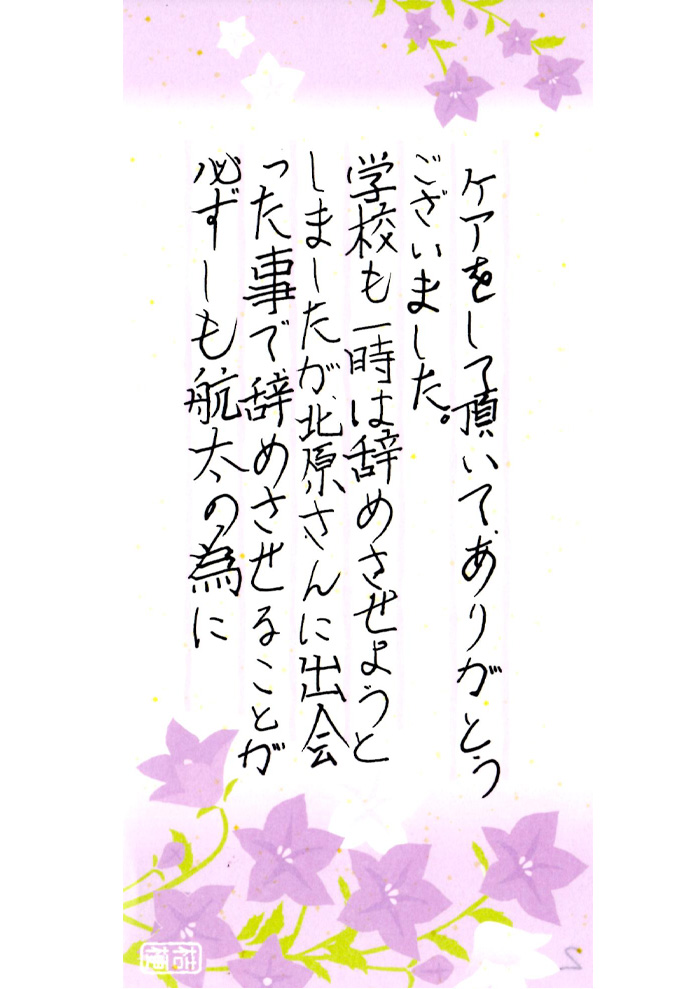 ケアをして頂いてありがとう
ございました。
学校も一時は辞めさせようと
しましたが北原さんに出会
った事で辞めさせることが
必ずしも航太の為に
2